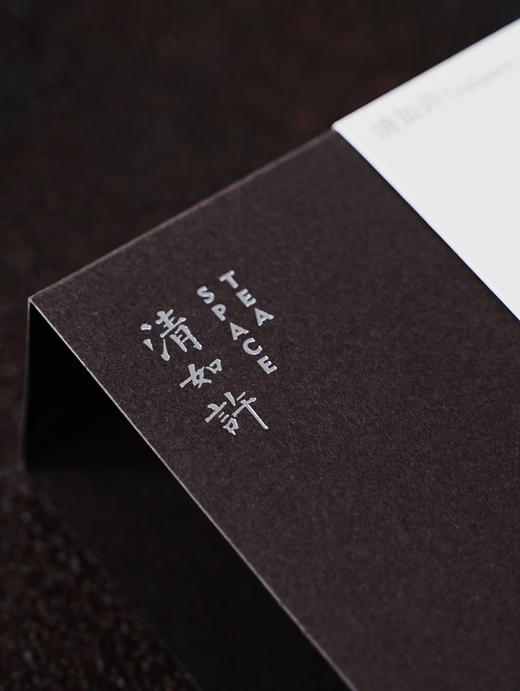 清如許
TEA
SPACE
清如許